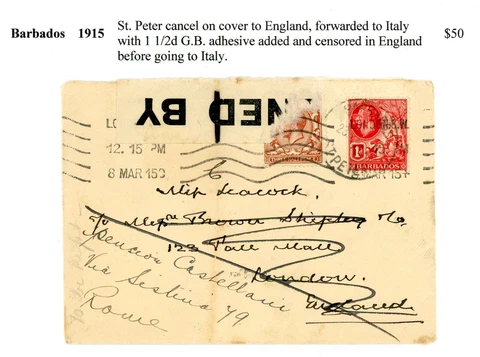 Barbados 1915
St. Peter cancel on cover to England, forwarded to Italy
with 1 1/2d G.B. adhesive added and censored in England
before going to Italy.
$50
NED BY
LO
12.15 PM
8 MAR 15
BARBADOS
Miss Leacock.
c/o Messrs Brown Shipley & Co.
123 Pall Mall
London.
England
Pension Castellani
Via Sistina 79
Rome